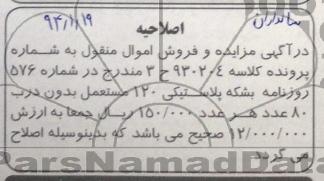 مازندران
۹۴/۱/۱۹
اصلاحیه
درآگهی مزایده و فروش اموال منقول به شماره
پرونده کلاسه ۹۳۰۲۰۴ ح ۳ مندرج در شماره ۵۷۶
روزنامه بشکه پلاستیکی ۱۲۰ مستعمل بدون درب
۸۰ عدد هر عدد ۱۵۰/۰۰۰ ریال جمعا به ارزش
۱۲/۰۰۰/۰۰۰ صحیح می باشد که بدینوسیله اصلاح
می گردد
ParsNamadData